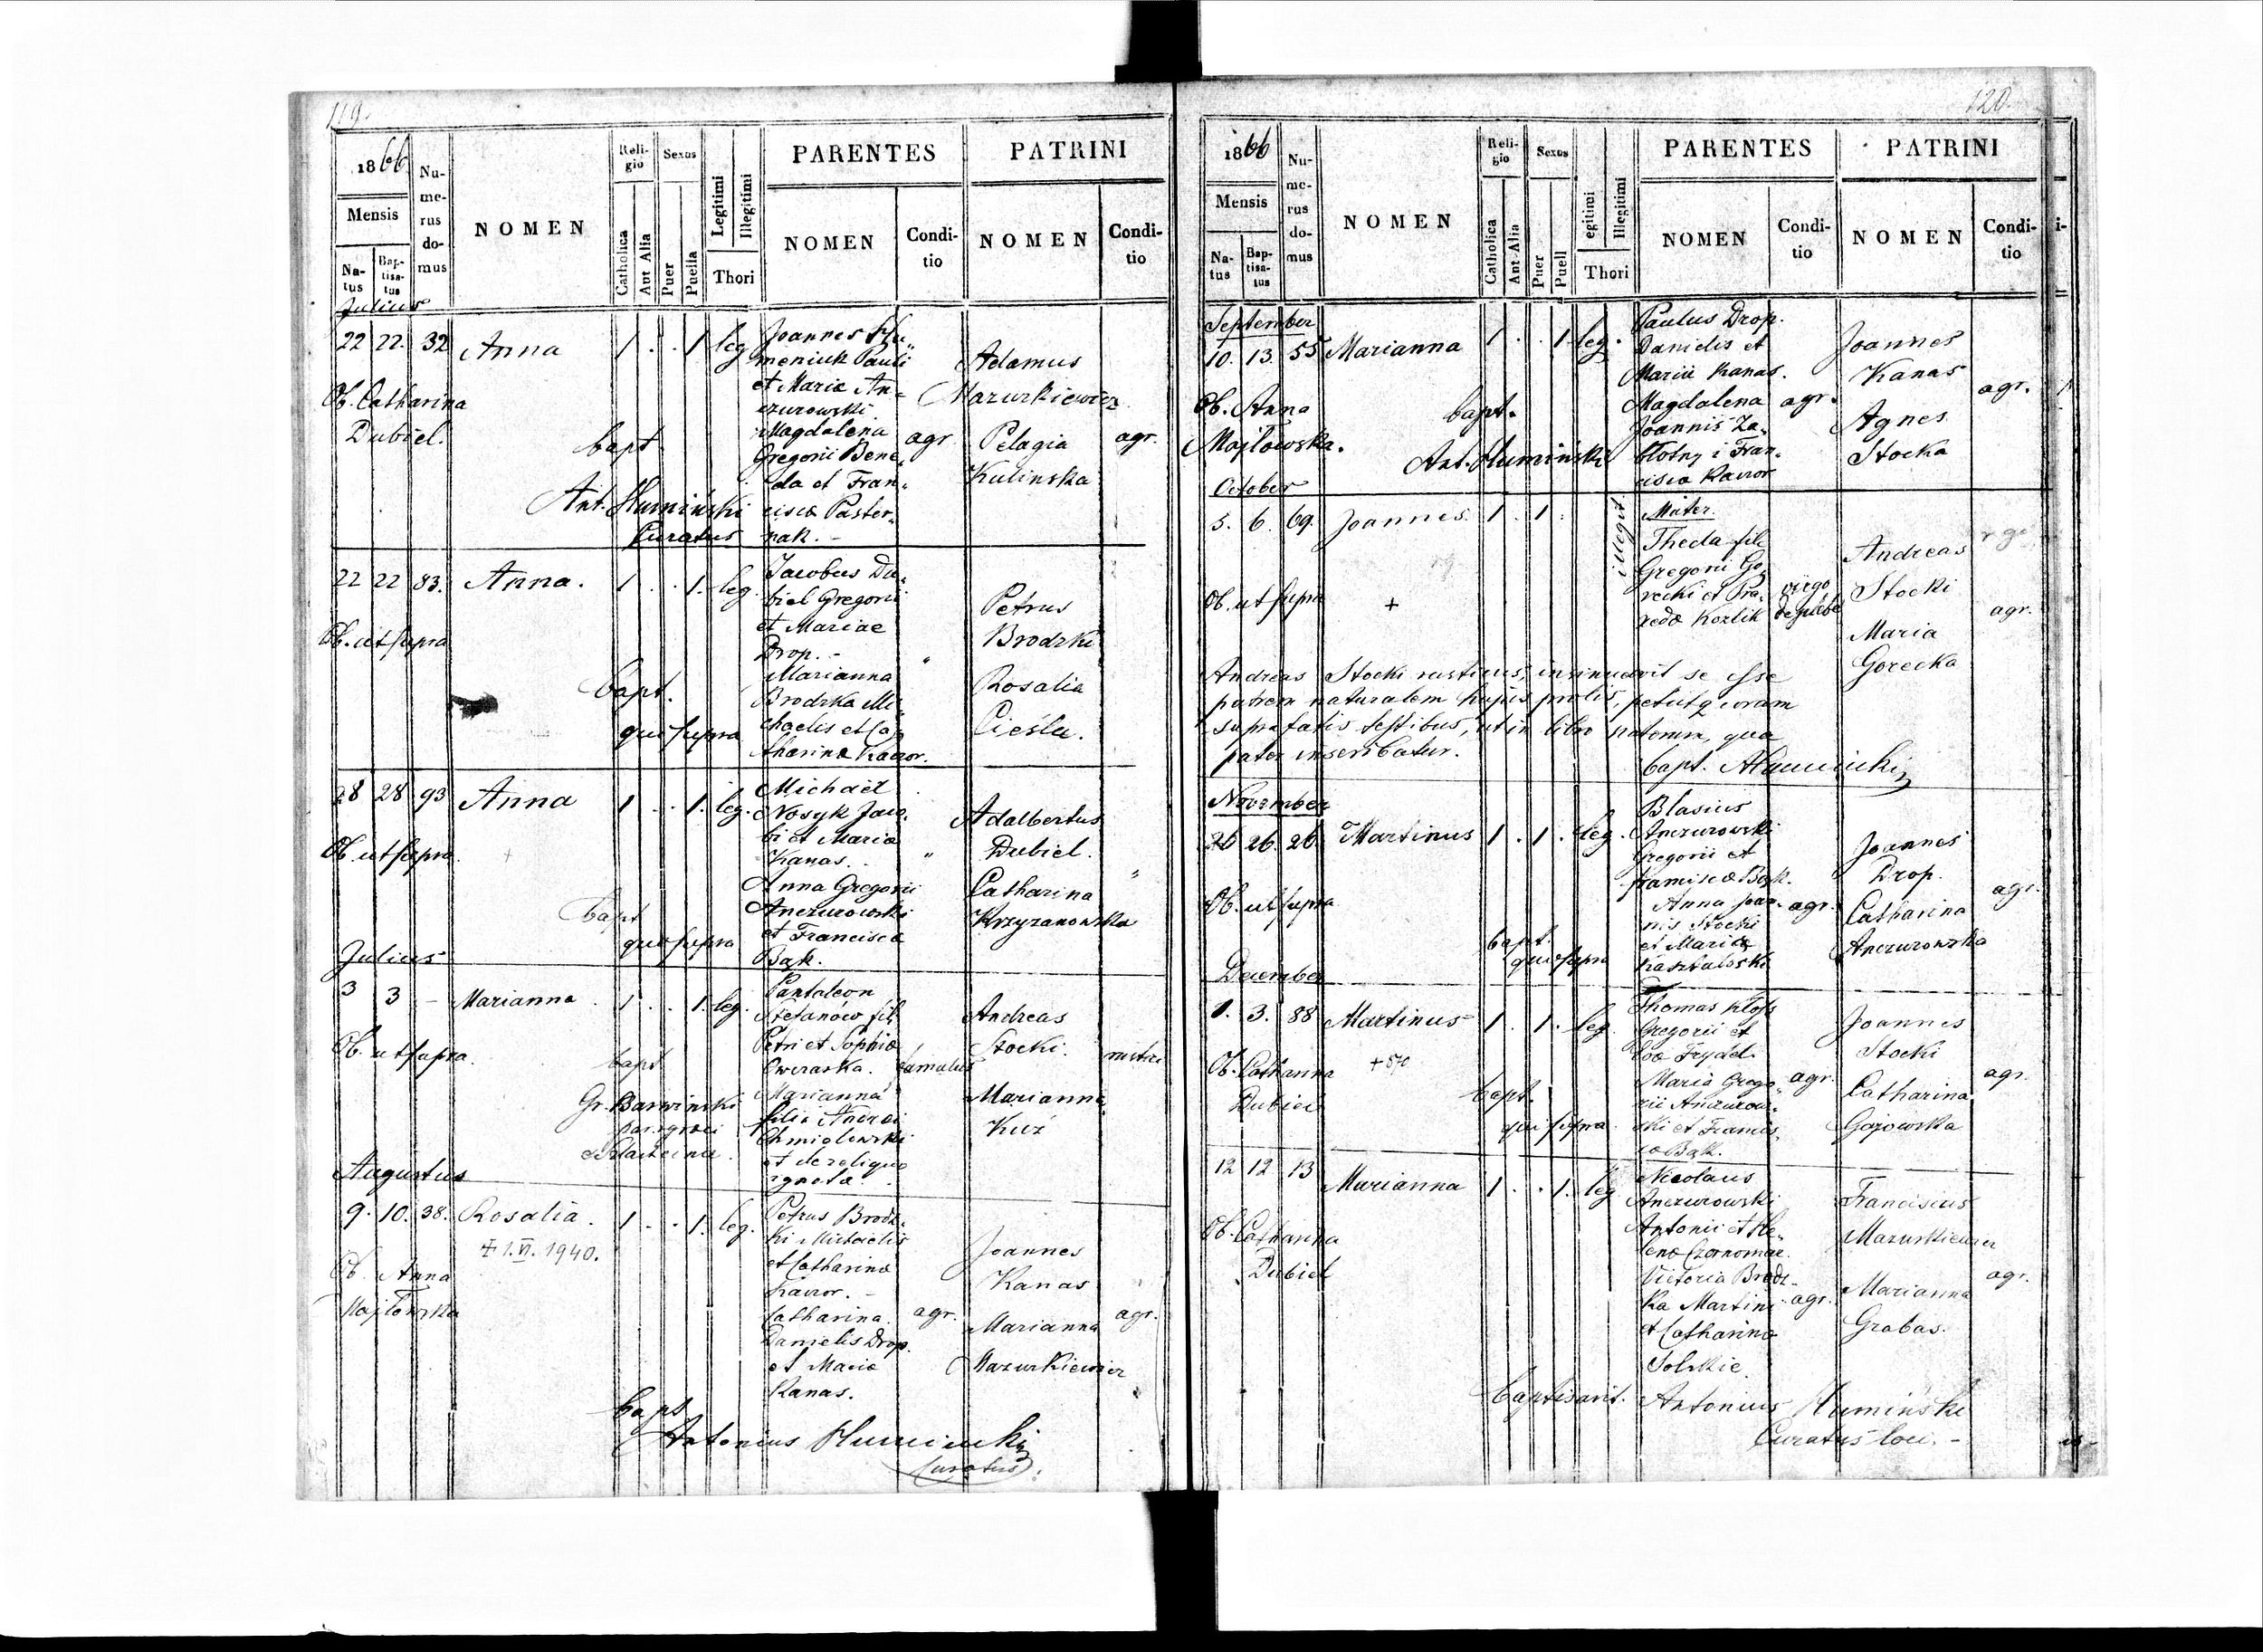 119.
1866
Mensis
Na-
tus
Bap-
tisa-
tus
Nu-
me-
rus
do-
mus
NOMEN
Reli-
gio
Catholica
Aut Alia
Sexus
Puer
Puella
Legitimi
Illegitimi
Thori
PARENTES
NOMEN
Condi-
tio
PATRINI
NOMEN
Condi-
tio
Julius
22 22. 32 Anna 1 . . 1 leg
Ob. Catharina
Dubiel.
bapt
Ant. Humiński
Curatus
Joannes Hu„
meniuk Pauli
et Mariæ An=
czurowski.
Magdalena
Gregorii Bene„
da et Fran„
ciscæ Paster„
nak. -
agr.
Adamus
Mazurkiewicz
Pelagia
Kulinska
agr.
22 22 83. Anna. 1 . . 1. leg.
Ob. ut supra
bapt.
qui supra
Jacobus Du„
biel Gregorii
et Mariae
Drop. -
Marianna
Brodzka Mi„
chaelis et Ca„
tharinæ Kawor.
"
Petrus
Brodzki
Rosalia
Cieśla.
28 28 93 Anna 1 . . 1. leg.
Ob. ut supra.
bapt
qui supra
Michael
Nosyk Jaco„
bi et Mariæ
Kanas.
Anna Gregorii
Anczurowski
et Franciscæ
Bąk.
"
Adalbertus
Dubiel.
Catharina
Krzyzanowska
"
Julius
3 3 - Marianna 1 . . 1. leg.
Ob. ut supra.
bapt
Gr. Barwinski
Pantaleon
Stefanów fil.
Petri et Sophiæ
Marianna
filia Andrei
Chmielewski
et de reliquo
ignota.
famulus
Andreas
Stocki.
Marianna
Kuź
rustici
Augustus
9. 10. 38. Rosalia. 1 . . 1. leg.
+ 1.VI. 1940.
Ob. Anna
Majtowska
Petrus Brodz„
ki Michaelis
et Catharinæ
Kawor. -
Catharina
Danielis Drop.
et Mariæ
Kanas.
agr.
Joannes
Kanas
Marianna
Mazurkiewicz
agr.
bapt
Antonius Humiński
Curatus.
120.
1866
Mensis
Na-
tus
Bap-
tisa-
tus
Nu-
me-
rus
do-
mus
NOMEN
Reli-
gio
Catholica
Aut Alia
Sexus
Puer
Puell
egitimi
Illegitimi
Thori
PARENTES
NOMEN
Condi-
tio
PATRINI
NOMEN
Condi-
tio
i-
September
10. 13. 55 Marianna 1 . . 1 leg.
Ob. Anna
Majtowska.
bapt.
Ant. Humiński
Paulus Drop.
Danielis et
Mariæ Kanas.
Magdalena
Joannis Za„
błotny i Fran„
ciscæ Kawor
agr.
Joannes
Kanas
Agnes
Stocka
agr.
October
5. 6. 69. Joannes. 1 . 1 . illegit
Ob. ut supra
+
Mater.
Thecla fil.
Gregorii Go„
recki et Pra„
xedæ Kozlik
virgo
de plebe
Andreas
Stocki
Maria
Gorecka
agr.
Andreas Stocki rusticus, insinuavit se esse
patrem naturalem hujus prolis, petiitq coram
suprafatis testibus, ut in libro natorum, qua
pater inscribatur.
bapt. AHumiński
November
26 26. 26. Martinus 1 . 1 . leg.
Ob. ut supra
bapt.
qui supra
Blasius
Anczurowski
Gregorii et
Franciscæ Bąk.
Anna Joan„
nis Stocki
et Mariæ
agr.
Joannes
Drop.
Catharina
Anczurowska
agr.
December
1. 3. 88 Martinus 1 . 1. leg.
Ob. Catharina
Dubiel
+870
bapt.
qui supra
Thomas
Gregorii et
Maria Grego„
rii Anczurow„
ski et Francis„
cæ Bąk.
agr.
Joannes
Stocki
Catharina
Gajowska
agr.
12 12 13 Marianna 1 . . 1. leg
Ob. Catharina
Dubiel
Nicolaus
Anczurowski
Antonii et He„
lenæ
Victoria Brodz-
ka Martini
et Catharinæ
Solskie.
agr.
Franciscus
Mazurkiewicz
Marianna
Grabas.
agr.
baptisavit. Antonius Humiński
Curatus loci. -